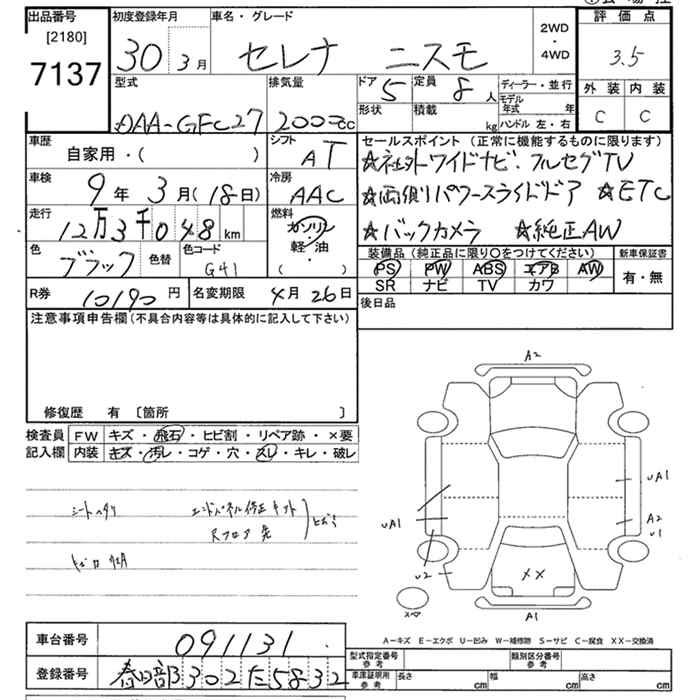 出品番号
[2180]
7137
初度登録年月
30 3月
車名・グレード
セレナ ニスモ
2WD
・
4WD
評価点
3.5
外装 内装
C C
型式
DAA-GFC27
排気量
2000cc
ドア 5
定員 8人
形状
積載 kg
ディーラー・並行
モデル年式 年
ハンドル 左・右
車歴
自家用・( )
シフト
AT
車検
9年3月(18日)
冷房
AAC
走行
12万3千048km
燃料
ガソリン
・
軽・油
( )
色
ブラック
色替
色コード
G41
セールスポイント (正常に機能するものに限ります)
☆社外ワイドナビ・フルセグTV
☆両側パワースライドドア ☆ETC
☆バックカメラ ☆純正AW
装備品(純正品に限り○をつけてください)
PS PW ABS エアB AW
SR ナビ TV カワ
新車保証書
有・無
R券
10190円
名変期限
4月26日
後日品
注意事項申告欄(不具合内容等は具体的に記入して下さい)
修復歴 有 〔箇所 〕
検査員
記入欄
FW キズ・飛石・ヒビ割・リペア跡・×要
内装 キズ・汚レ・コゲ・穴・スレ・キレ・破レ
シートヘタリ
エンドパネル修正
A2
UA1
UA1
A2
U1
U2
XX
スペア
A1
A-キズ E-エクボ U-凹み W-補修跡 S-サビ C-腐食 XX-交換済
車台番号
091131
登録番号
春日部302た5832
型式指定番号
参考
類別区分番号
参考
車庫証明用
参考
長さ cm
幅 cm
高さ cm